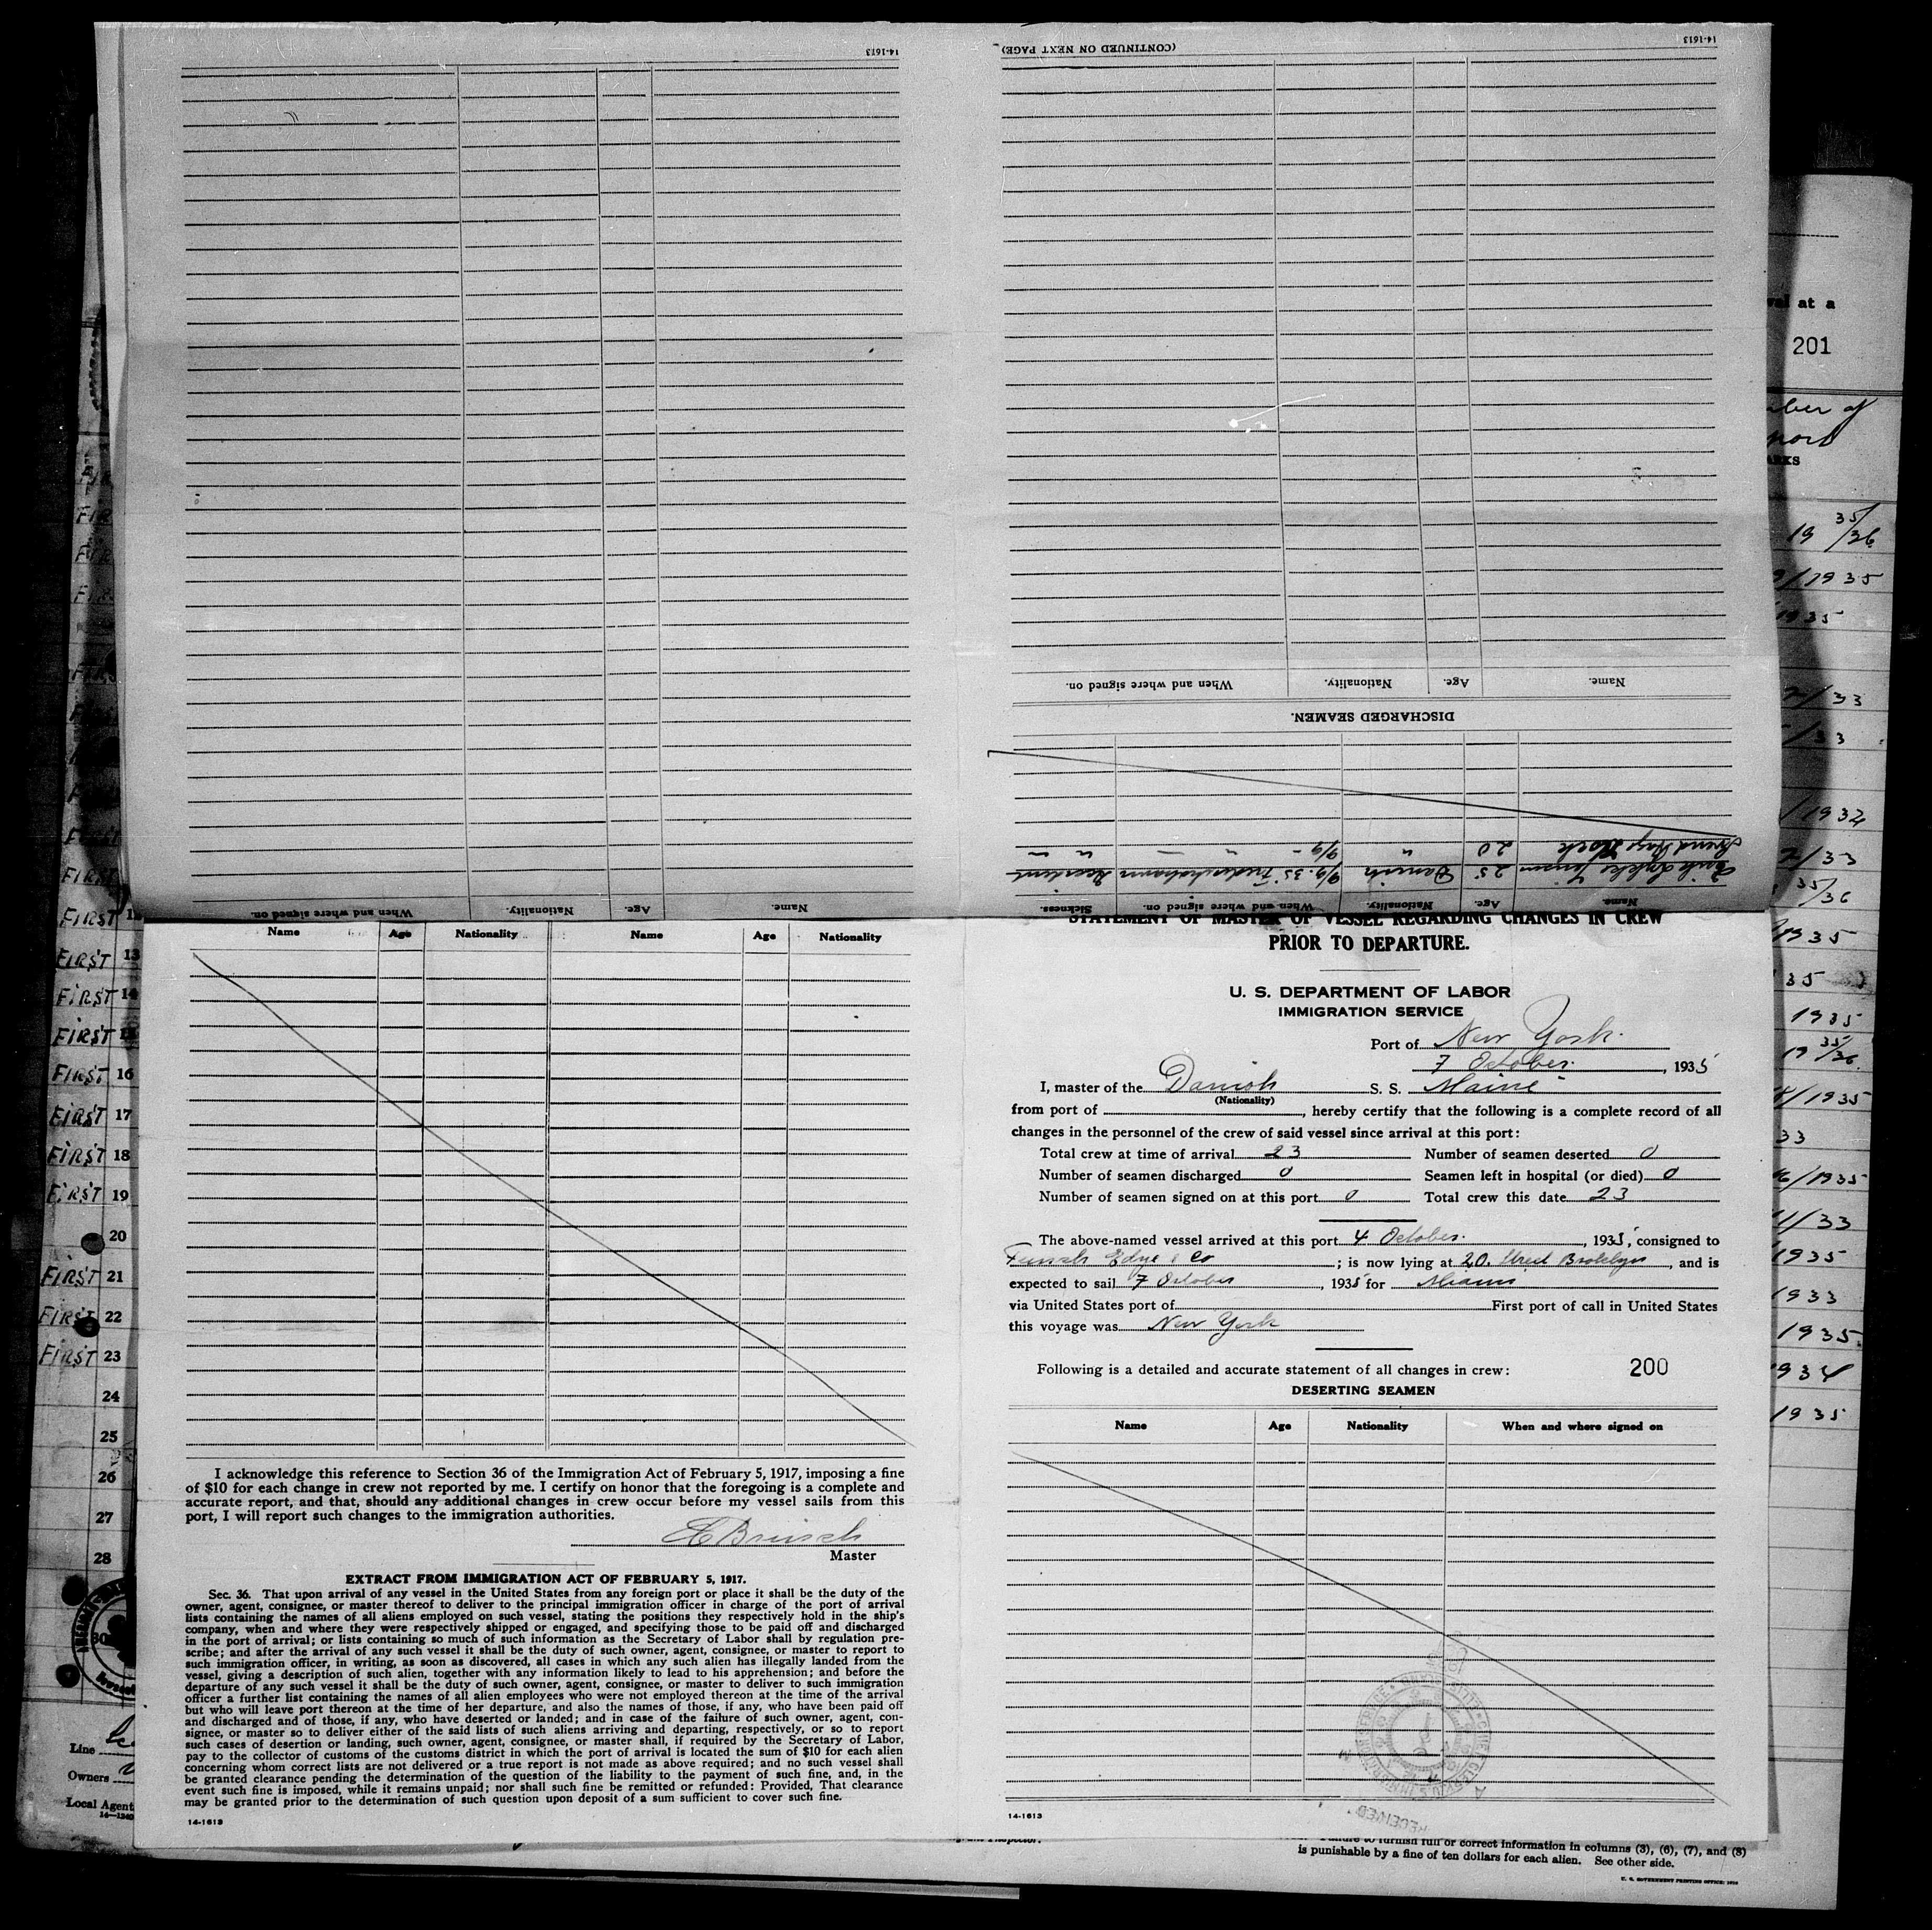 14-1613
(CONTINUED ON NEXT PAGE)
14-1613
When and where signed on.
Nationality.
Age.
Name.
DISCHARGED SEAMEN.
20
25 Danish 9/9.35 Frederikshavn
Name. Age. Nationality. When and where signed on. Sickness.
Name. Age. Nationality. When and where signed on.
at a
201
35/36
1935
1935
STATEMENT OF MASTER OF VESSEL REGARDING CHANGES IN CREW
PRIOR TO DEPARTURE.
U. S. DEPARTMENT OF LABOR
IMMIGRATION SERVICE
Port of New York.
7 October. , 1935
I, master of the Danish S. S. Maine
(Nationality)
from port of , hereby certify that the following is a complete record of all
changes in the personnel of the crew of said vessel since arrival at this port:
Total crew at time of arrival 23 Number of seamen deserted 0
Number of seamen discharged 0 Seamen left in hospital (or died) 0
Number of seamen signed on at this port 0 Total crew this date 23
The above-named vessel arrived at this port 4 October. , 1935, consigned to
Funch Edye & Co ; is now lying at 20. Street Brooklyn , and is
expected to sail 7 October , 1935 for Miami
via United States port of First port of call in United States
this voyage was New York
Following is a detailed and accurate statement of all changes in crew: 200
DESERTING SEAMEN
Name Age Nationality When and where signed on
14-1613
Name Age Nationality Name Age Nationality
I acknowledge this reference to Section 36 of the Immigration Act of February 5, 1917, imposing a fine
of $10 for each change in crew not reported by me. I certify on honor that the foregoing is a complete and
accurate report, and that, should any additional changes in crew occur before my vessel sails from this
port, I will report such changes to the immigration authorities.
Master
EXTRACT FROM IMMIGRATION ACT OF FEBRUARY 5, 1917.
Sec. 36. That upon arrival of any vessel in the United States from any foreign port or place it shall be the duty of the
owner, agent, consignee, or master thereof to deliver to the principal immigration officer in charge of the port of arrival
lists containing the names of all aliens employed on such vessel, stating the positions they respectively hold in the ship's
company, when and where they were respectively shipped or engaged, and specifying those to be paid off and discharged
in the port of arrival; or lists containing so much of such information as the Secretary of Labor shall by regulation pre-
scribe; and after the arrival of any such vessel it shall be the duty of such owner, agent, consignee, or master to report to
such immigration officer, in writing, as soon as discovered, all cases in which any such alien has illegally landed from the
vessel, giving a description of such alien, together with any information likely to lead to his apprehension; and before the
departure of any such vessel it shall be the duty of such owner, agent, consignee, or master to deliver to such immigration
officer a further list containing the names of all alien employees who were not employed thereon at the time of the arrival
but who will leave port thereon at the time of her departure, and also the names of those, if any, who have been paid off
and discharged and of those, if any, who have deserted or landed; and in case of the failure of such owner, agent, con-
signee, or master so to deliver either of the said lists of such aliens arriving and departing, respectively, or so to report
such cases of desertion or landing, such owner, agent, consignee, or master shall, if required by the Secretary of Labor,
pay to the collector of customs of the customs district in which the port of arrival is located the sum of $10 for each alien
concerning whom correct lists are not delivered or a true report is not made as above required; and no such vessel shall
be granted clearance pending the determination of the question of the liability to the payment of such fine, and, in the
event such fine is imposed, while it remains unpaid; nor shall such fine be remitted or refunded: Provided, That clearance
may be granted prior to the determination of such question upon deposit of a sum sufficient to cover such fine.
14-1613
FIRST 13
FIRST 14
FIRST 15
FIRST 16
FIRST 17
FIRST 18
FIRST 19
20
FIRST 21
FIRST 22
FIRST 23
24
25
26
27
28
30
Line
Owners
Local Agent
to furnish full or correct information in columns (3), (6), (7), and (8)
is punishable by a fine of ten dollars for each alien. See other side.
U. S. GOVERNMENT PRINTING OFFICE